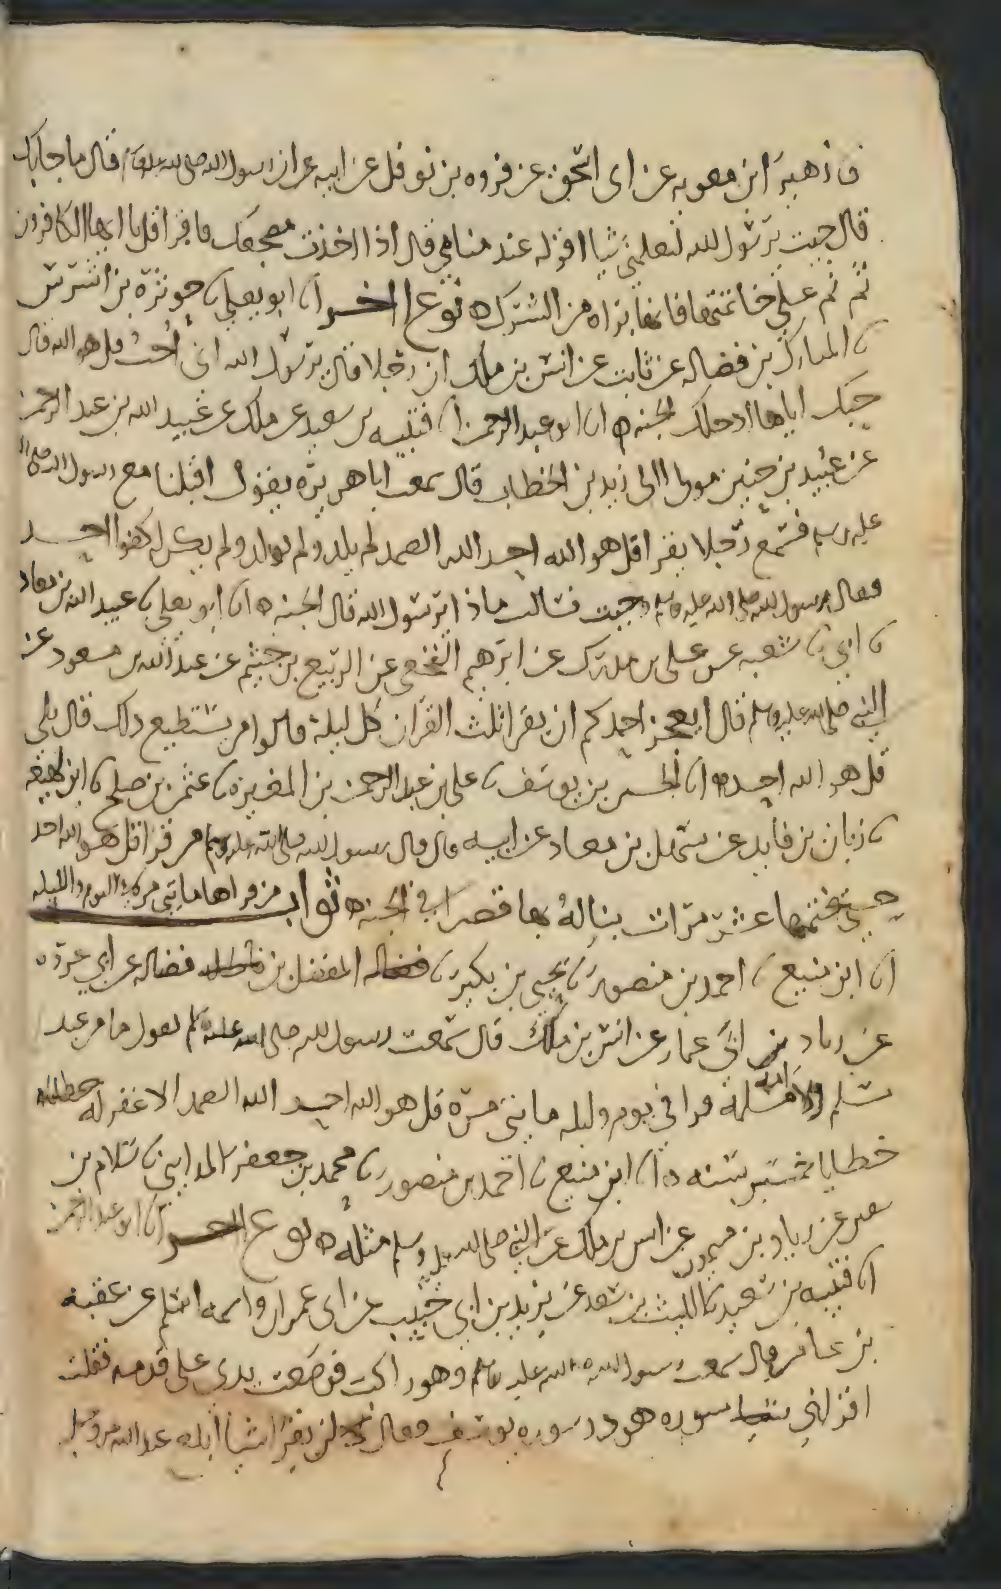 ثنا زهير ابن معويه عن ابي اسحق عن فروه بن نوفل عن ابيه عن ان رسول الله صلى الله عليه وسلم قال ما جا بك
قال جيت يرسول الله لتعلمني شيا اقوله عند منامي قال اذا اخذت مضجعك فاقرا قل يا ايها الكافرون
ثم نم على خاتمتها فانها براه من الشرك ه نوع اخر انا ابو يعلى نا حوثرة بن اشرس
نا المبارك بن فضاله عن ثابت عن انس بن ملك ان رجلا قال يرسول الله اني احب قل هو الله قال
حبك اياها ادخلك الجنه ه انا ابو عبد الرحمن انا قتيبه بن سعيد عن ملك عن عبيد الله بن عبد الرحمن
عن عبيد بن حنين مولى ال زيد بن الخطاب قال سمعت ابا هريره يقول اقبلنا مع رسول الله صلى الله
عليه وسلم فسمع رجلا يقرا قل هو الله احد الله الصمد لم يلد ولم يولد ولم يكن له كفوا احد
فقال رسول الله صلى الله عليه وسلم وجبت فسالت ماذا يرسول الله قال الجنه ه انا ابو يعلى نا عبيد الله بن معاد
نا ابي نا شعبه عن علي بن مدرك عن ابرهيم النخعي عن الربيع بن خثيم عن عبد الله بن مسعود عن
النبي صلى الله عليه وسلم قال ايعجز احدكم ان يقرا ثلث القران كل ليلة قالوا من يستطيع ذلك قال بلى
قل هو الله احد ه انا الحسن بن يوسف نا علي بن عبد الرحمن بن المغيره نا عثمن بن صلح نا ابن لهيعه
نا زبان بن فايد عن سهل بن معاد عن ابيه قال قال رسول الله صلى الله عليه وسلم من قرا قل هو الله احد
حتى يختمها عشر مرات بنا له بها قصرا في الجنه ه ثواب من قراها مايتي مره في اليوم والليله
انا ابن منيع نا احمد بن منصور نا يحيى بن بكير نا المفضل بن فضاله عن ابي عروه
عن زياد بن ابي عمار عن انس بن ملك قال سمعت رسول الله صلى الله عليه وسلم يقول ما من عبد
مسلم ولا امه مسلمه قرا في يوم وليله مايتي مرة قل هو الله احد الله الصمد الا غفر له
خطايا خمسين سنه ه انا ابن منيع نا احمد بن منصور نا محمد بن جعفر المدايني نا سلام بن
عن زياد بن ميمون عن انس بن ملك عن النبي صلى الله عليه وسلم مثله ه نوع اخر انا ابو عبد الرحمن
انا قتيبه بن سعيد نا الليث بن سعد عن يزيد بن ابي حبيب عن ابي عمران واسمه اسلم عن عقبه
بن عامر قال سمعت رسول الله صلى الله عليه وسلم وهو راكب فوضعت يدي على قدمه فقلت
اقرئني سوره هود وسوره يوسف فقال لن تقرا شيا ابلغ عند الله عز وجل